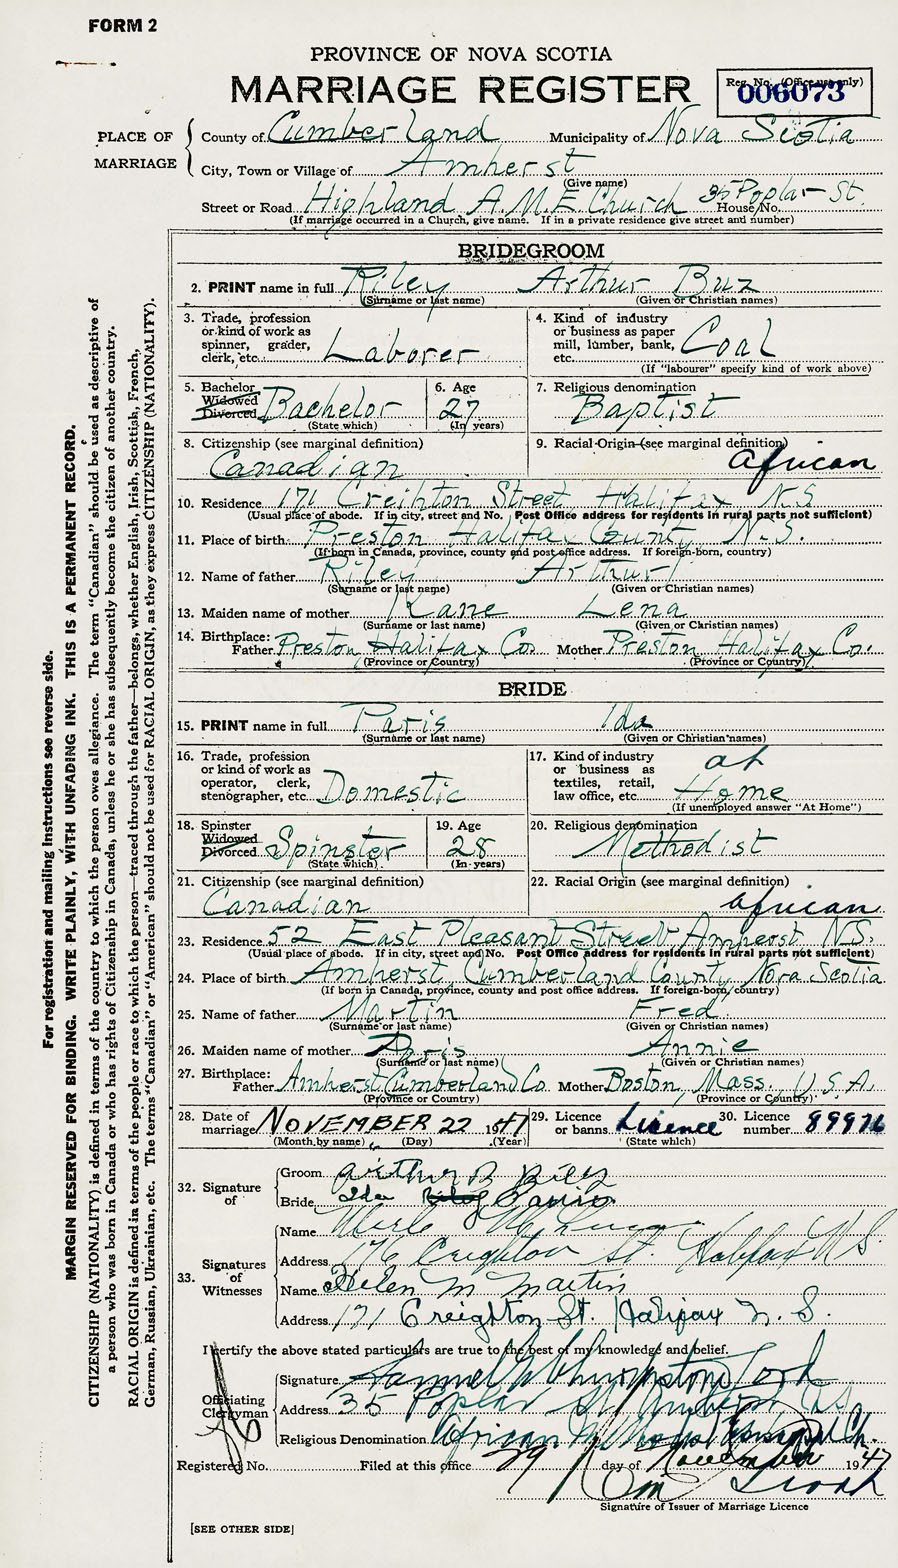 FORM 2
PROVINCE OF NOVA SCOTIA
MARRIAGE REGISTER
Reg. No. (Office use only)
006073
PLACE OF MARRIAGE
County of Cumberland Municipality of Nova Scotia
City, Town or Village of Amherst
(Give name)
Street or Road Highland A.M.E. Church 35 Poplar St. House No.
(If marriage occurred in a Church, give name. If in a private residence give street and number)
BRIDEGROOM
2. PRINT name in full Riley Arthur Buz
(Surname or last name) (Given or Christian names)
3. Trade, profession or kind of work as spinner, grader, clerk, etc. Laborer
4. Kind of industry or business as paper mill, lumber, bank, etc. Coal
(If "labourer" specify kind of work above)
5. Bachelor Widowed Divorced Bachelor
(State which)
6. Age 27
(In years)
7. Religious denomination Baptist
8. Citizenship (see marginal definition) Canadian
9. Racial Origin (see marginal definition) African
10. Residence 171 Creihton Street Halifax N.S
(Usual place of abode. If in city, street and No. Post Office address for residents in rural parts not sufficient)
11. Place of birth Preston Halifax County N.S.
(If born in Canada, province, county and post office address. If foreign-born, country)
12. Name of father Riley Arthur
(Surname or last name) (Given or Christian names)
13. Maiden name of mother Kane Lena
(Surname or last name) (Given or Christian names)
14. Birthplace:
Father Preston Halifax Co. Mother Preston Halifax Co.
(Province or Country) (Province or Country)
BRIDE
15. PRINT name in full Paris Ida
(Surname or last name) (Given or Christian names)
16. Trade, profession or kind of work as operator, clerk, stenographer, etc. Domestic
17. Kind of industry or business as textiles, retail, law office, etc. at Home
(If unemployed answer "At Home")
18. Spinster Widowed Divorced Spinster
(State which)
19. Age 28
(In years)
20. Religious denomination Methodist
21. Citizenship (see marginal definition) Canadian
22. Racial Origin (see marginal definition) African
23. Residence 52 East Pleasant Street Amherst N.S.
(Usual place of abode. If in city, street and No. Post Office address for residents in rural parts not sufficient)
24. Place of birth Amherst, Cumberland County, Nova Scotia
(If born in Canada, province, county and post office address. If foreign-born, country)
25. Name of father Martin Fred
(Surname or last name) (Given or Christian names)
26. Maiden name of mother Paris Annie
(Surname or last name) (Given or Christian names)
27. Birthplace:
Father Amherst Cumberland Co. Mother Boston, Mass. U.S.A.
(Province or Country) (Province or Country)
28. Date of marriage NOVEMBER 22 1947
(Month by name) (Day) (Year)
29. Licence or banns Licence
(State which)
30. Licence number
32. Signature of
Groom Arthur B Riley
Bride Ida Paris
33. Signatures of Witnesses
Name Merle
Address 176 Creighton St. Halifax N S.
Name Helen M Martin
Address 171 Creighton St. Halifax N. S.
I certify the above stated particulars are true to the best of my knowledge and belief.
Officiating Clergyman
Signature Samuel
Address 35 Poplar St Amherst N.S
Religious Denomination African Methodist Episcopal Ch.
Registered No. Filed at this office 29 day of November 1947
Signature of Issuer of Marriage Licence
[SEE OTHER SIDE]
For registration and mailing instructions see reverse side.
MARGIN RESERVED FOR BINDING. WRITE PLAINLY, WITH UNFADING INK. THIS IS A PERMANENT RECORD.
CITIZENSHIP (NATIONALITY) is defined in terms of the country to which the person owes allegiance. The term "Canadian" should be used as descriptive of
a person who was born in Canada or who has rights of Citizenship in Canada, unless he or she has subsequently become the citizen of another country.
RACIAL ORIGIN is defined in terms of the people or race to which the person—traced through the father—belongs, whether English, Irish, Scottish, French,
German, Russian, Ukrainian, etc. The terms "Canadian" or "American" should not be used for RACIAL ORIGIN, as they express CITIZENSHIP (NATIONALITY).